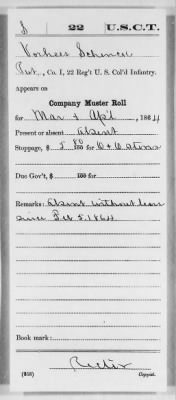 S | 22 | U.S.C.T.
Vorhees Schenck
Pvt., Co. I, 22 Reg't U. S. Col'd Infantry.
Appears on
Company Muster Roll
for Mar & Apl, 1864
Present or absent Absent
Stoppage, $ 5 80/100 for C & G
Due Gov't, $ 100 for
Remarks: Absent without leave
since Feb 5, 1864
Book mark:
(858) Copyist.